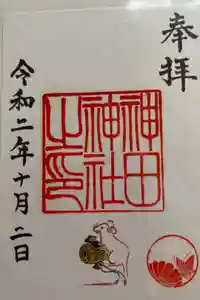 奉拝
神田
神社
之印
令和二年十月二日